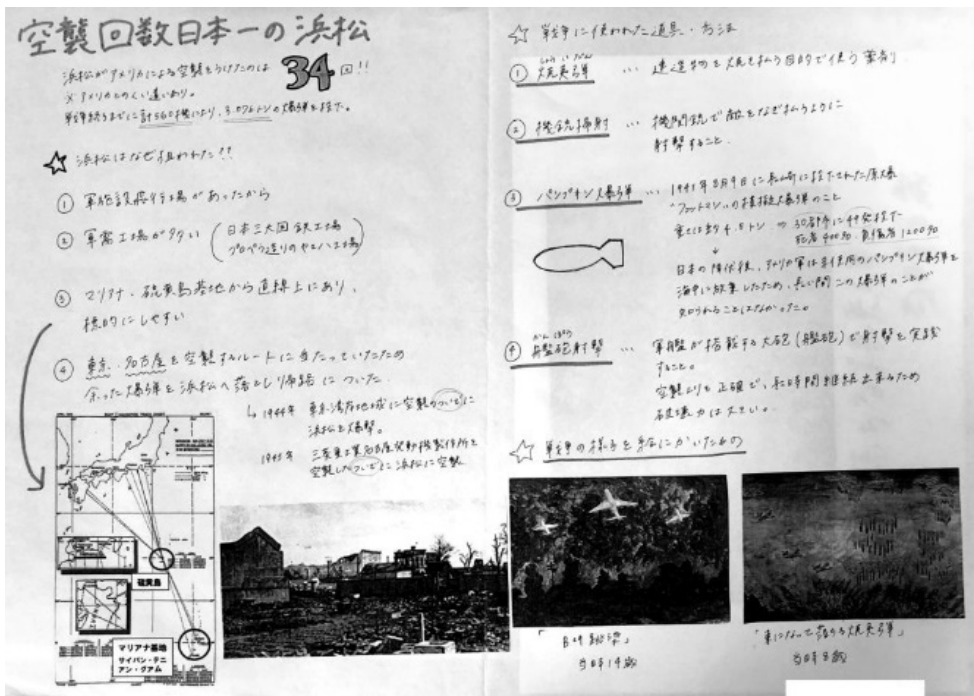 空襲回数日本一の浜松
浜松がアメリカによる空襲をうけたのは 34回!!
※アメリカとのくい違いあり。
戦争終るまでに計560機により、3,076トンの爆弾を投下。
☆ 浜松はなぜ狙われた!!
① 軍施設飛行場があったから
② 軍需工場が多い (日本三大国鉄工場
プロペラ造りのヤマハ工場)
③ マリアナ、硫黄島基地から直線上にあり、
標的にしやすい
④ 東京、名古屋を空襲するルートに当たっていたため
余った爆弾を浜松へ落とし帰路についた
↳ 1944年 東京湾岸地域に空襲のついでに
浜松を爆撃。
1945年 三菱重工業名古屋発動機製作所を
空襲したついでに浜松に空襲
硫黄島
マリアナ基地
サイパン・テニ
アン・グアム
☆ 戦争に使われた道具・方法
しょういだん
① 焼夷弾 … 建造物を焼き払う目的で使う薬剤
② 機銃掃射 … 機関銃で敵をなぎ払うように
射撃すること。
③ パンプキン爆弾 … 1945年8月9日に長崎に投下された原爆
"ファットマン"の模擬爆弾のこと
重さは約4.5トン ⇒ 30都市に49発投下
死者400名・負傷者1200名
↓
日本の降伏後、アメリカ軍は未使用のパンプキン爆弾を
海中に放棄したため、長い間この爆弾のことが
知られることはなかった。
かんぽう
④ 艦砲射撃 … 軍艦が搭載する大砲(艦砲)で射撃を実践
すること。
空襲よりも正確で、長時間継続出来るため
破壊力は大きい。
☆ 戦争の様子を絵にかいたもの
当時14歳
「束になって落ちる焼夷弾」
当時8歳